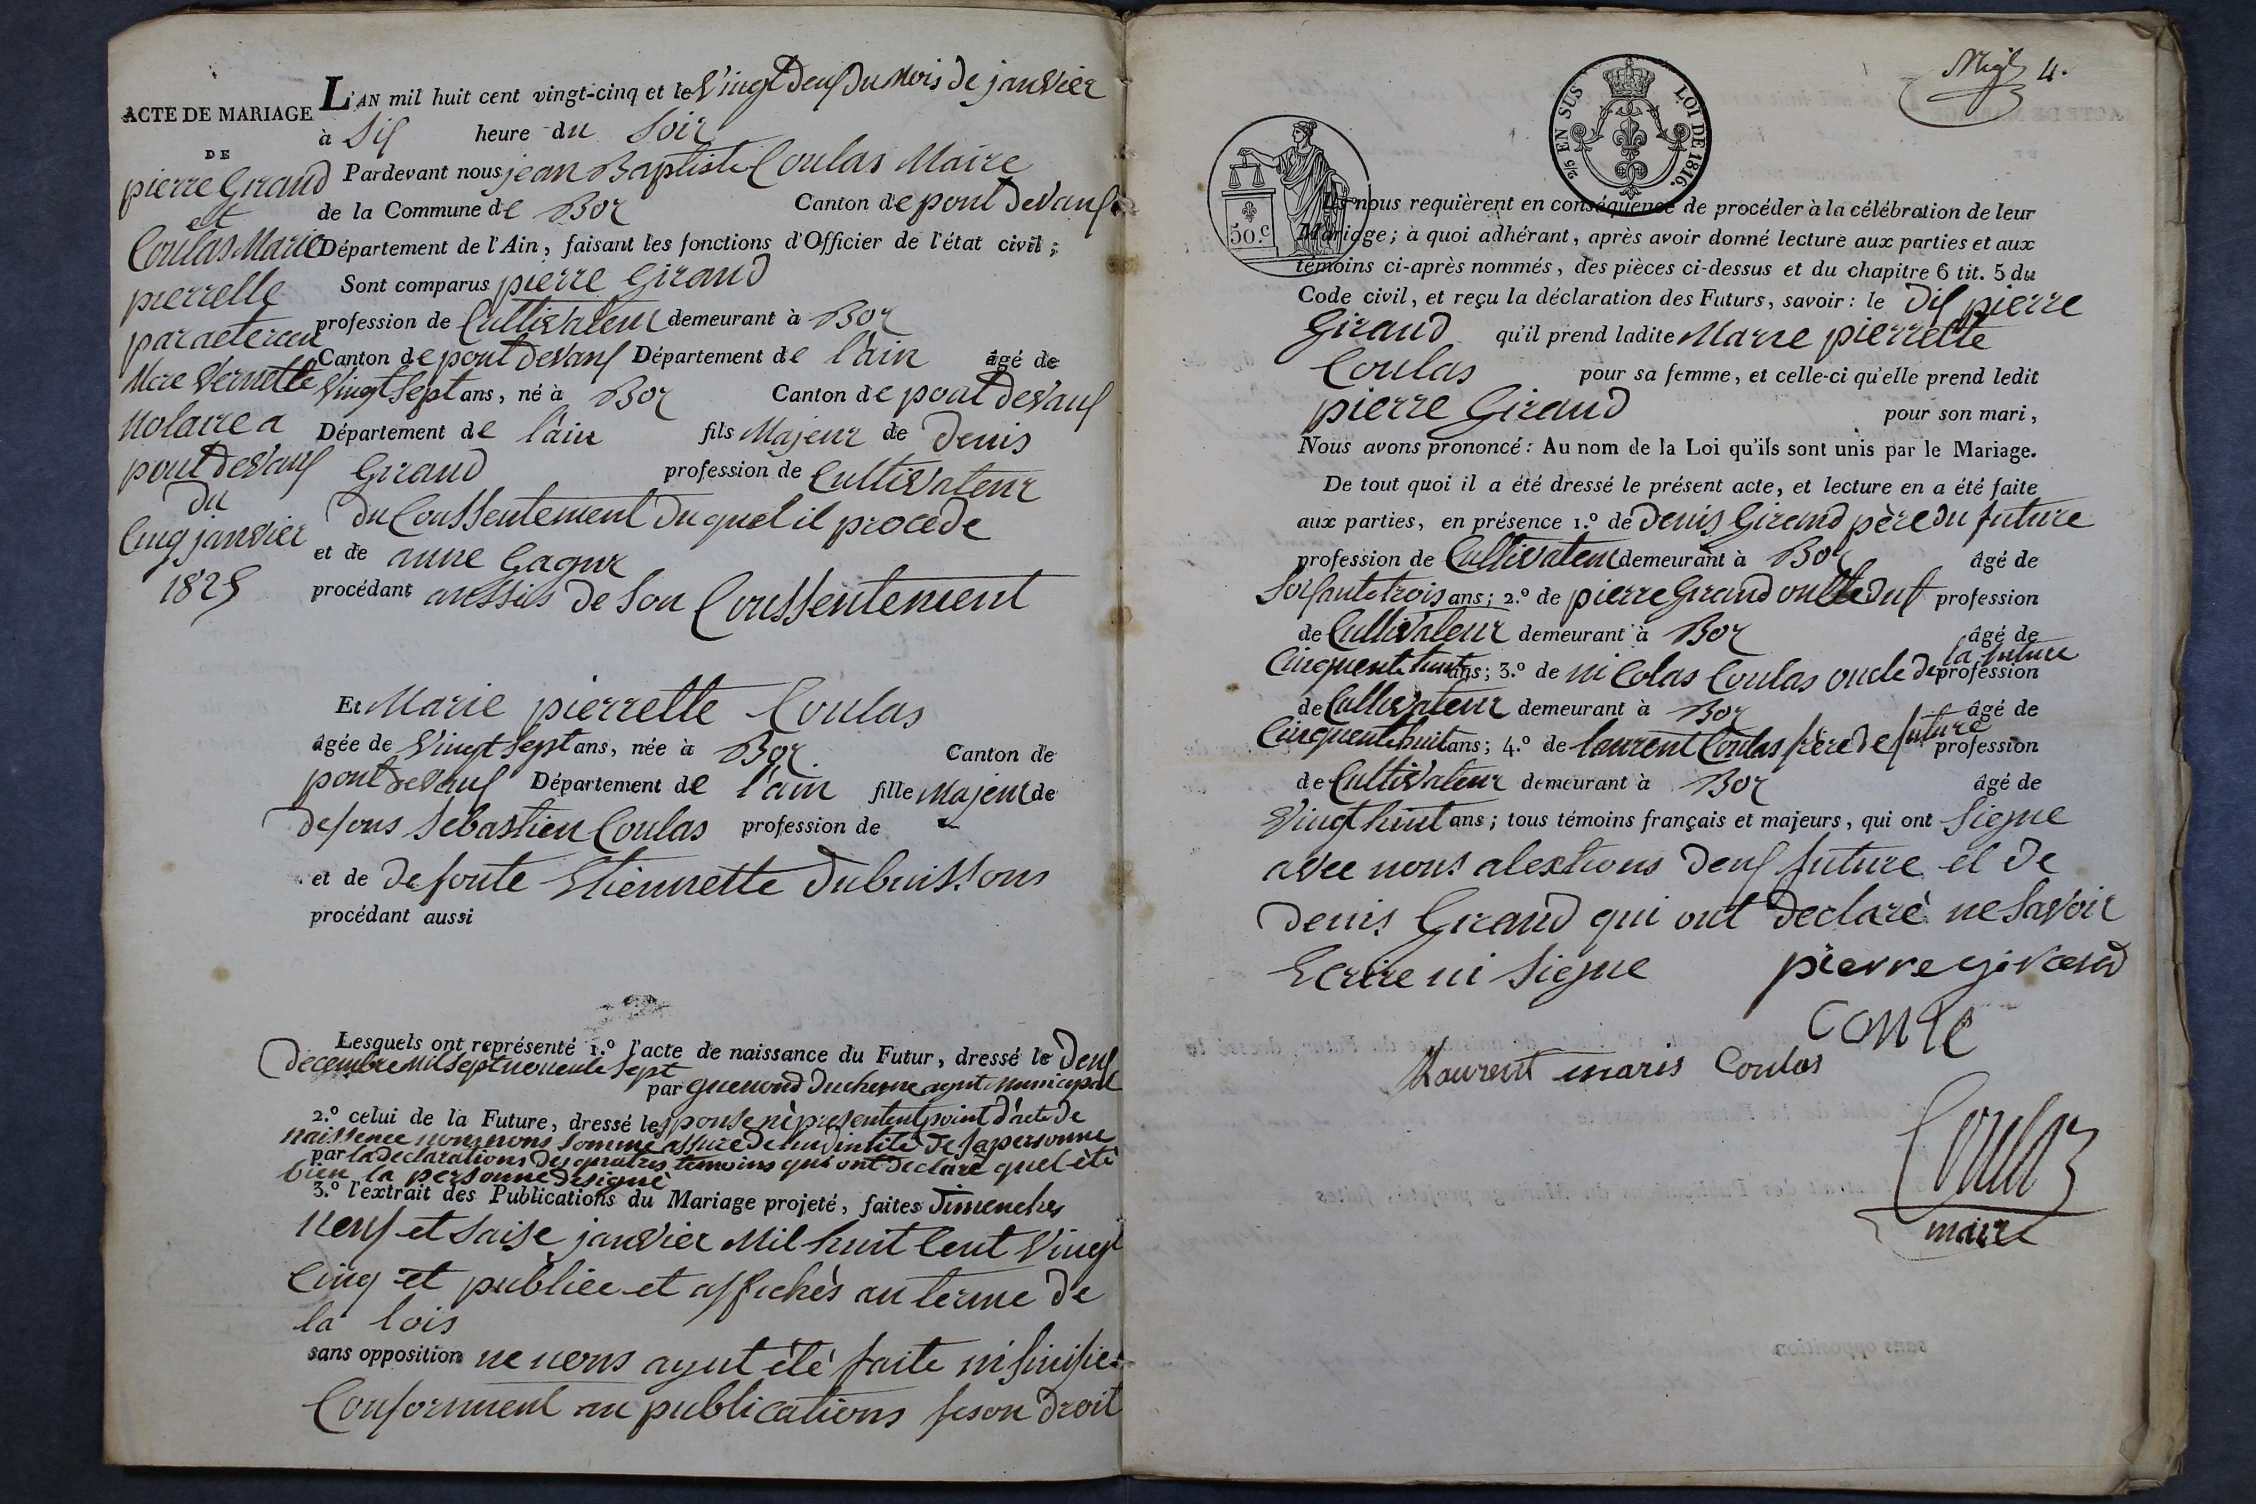 ACTE DE MARIAGE
DE
pierre Giraud
et
Coulas Marie
pierrette
par acte recu
Mere Vernette
Nolaire a
pont deVaux
du
Cinq janvier
1825
L'AN mil huit cent vingt-cinq et le Vingt deux du Mois de janvier
à Six heure du Soir
Pardevant nous jean Baptiste Coulas Maire
de la Commune de Boz Canton de pont deVaux
Département de l'Ain, faisant les fonctions d'Officier de l'état civil;
Sont comparus pierre Giraud
profession de CultiVateur demeurant à Boz
Canton de pont deVaux Département de l'ain âgé de
Vingt Sept ans, né à Boz Canton de pont deVaux
Département de l'ain fils Majeur de Denis
Giraud profession de CultiVateur
du Conssentement du quel il procede
et de anne Gagnr
procédant aussis de Son Conssentement
Et Marie pierrette Coulas
âgée de Vingt Sept ans, née à Boz Canton de
pont deVaux Département de l'ain fille Majeur de
defons Sebastien Coulas profession de
et de defonte Etiennette dubuissons
procédant aussi
Lesquels ont représenté 1.º l'acte de naissance du Futur, dressé le Deux
decembre Mil Sept nonente Sept
par guenond Ducherne agent Municipal
2.º celui de la Future, dressé le sponse ne presentent point d'acte de
naissence nom nous somme assuré de lindintité de sa personne
par la declarations des quatres temoins qui ont declaré quel été
bien la personne designé
3.º l'extrait des Publications du Mariage projeté, faites Dimenches
Neuf et Saise janvier Mil huit Cent Vingt
Cinq et publiée et affichés au terme de
la lois
sans opposition ne nons ayut été faite ni sinifie
Conforment au publications feson droit
Migl 4.
2/5 EN SUS LOI DE 1816.
50.c
Ils nous requièrent en conséquence de procéder à la célébration de leur
Mariage; à quoi adhérant, après avoir donné lecture aux parties et aux
témoins ci-après nommés, des pièces ci-dessus et du chapitre 6 tit. 5 du
Code civil, et reçu la déclaration des Futurs, savoir: le Dit pierre
Giraud qu'il prend ladite Marie pierrette
Coulas pour sa femme, et celle-ci qu'elle prend ledit
pierre Giraud pour son mari,
Nous avons prononcé: Au nom de la Loi qu'ils sont unis par le Mariage.
De tout quoi il a été dressé le présent acte, et lecture en a été faite
aux parties, en présence 1.º de Denis Giraud père du future
profession de CultiVateur demeurant à Boz âgé de
Soixante trois ans; 2.º de pierre Giraud oncle duf profession
de CultiVateur demeurant à Boz âgé de
Cinquente huit ans; 3.º de nicolas Coulas oncle de la future profession
de CultiVateur demeurant à Boz âgé de
Cinquente huit ans; 4.º de laurent Coulas frère de future profession
de CultiVateur demeurant à Boz âgé de
Vingt huit ans; tous témoins français et majeurs, qui ont Siegne
avec nous alextions deux future et de
denis Giraud qui ont declaré ne SaVoir
Ecrire ni Siegne pierre giraud
Laurent maris Coulas
Coulas
maire